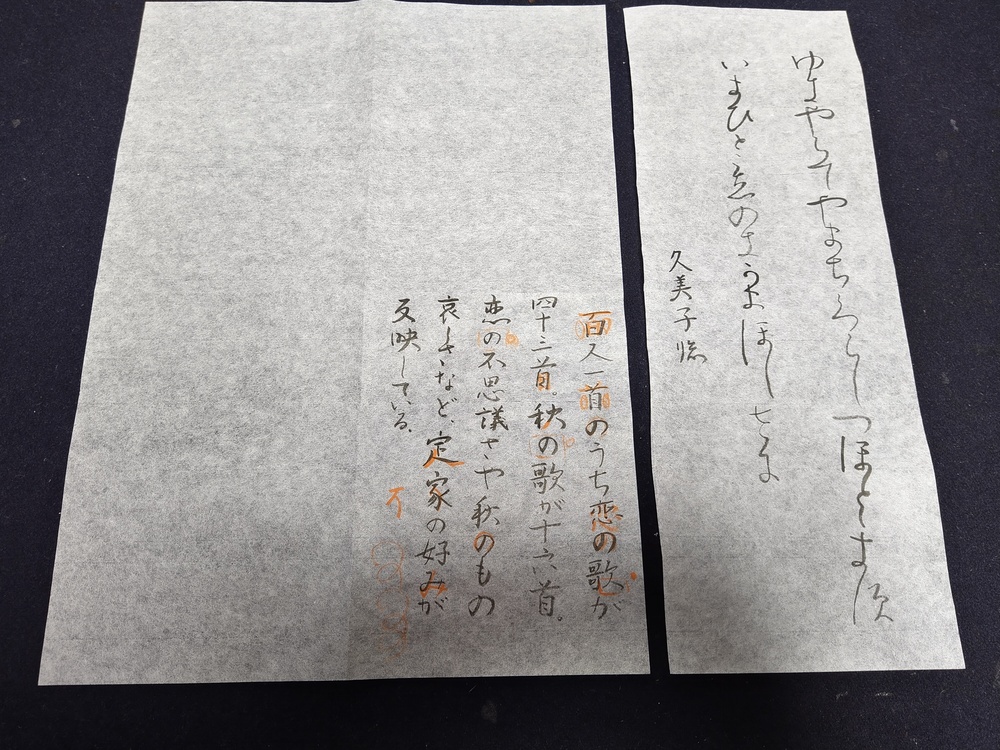 ゆきやらてやまちくらしつほとゝき須
いまひとこ恵のきかまほしさに
久美子臨
百人一首のうち恋の歌が
四十三首。秋の歌が十六首。
恋の不思議さや秋のもの
哀しさなど、定家の好みが
反映している。